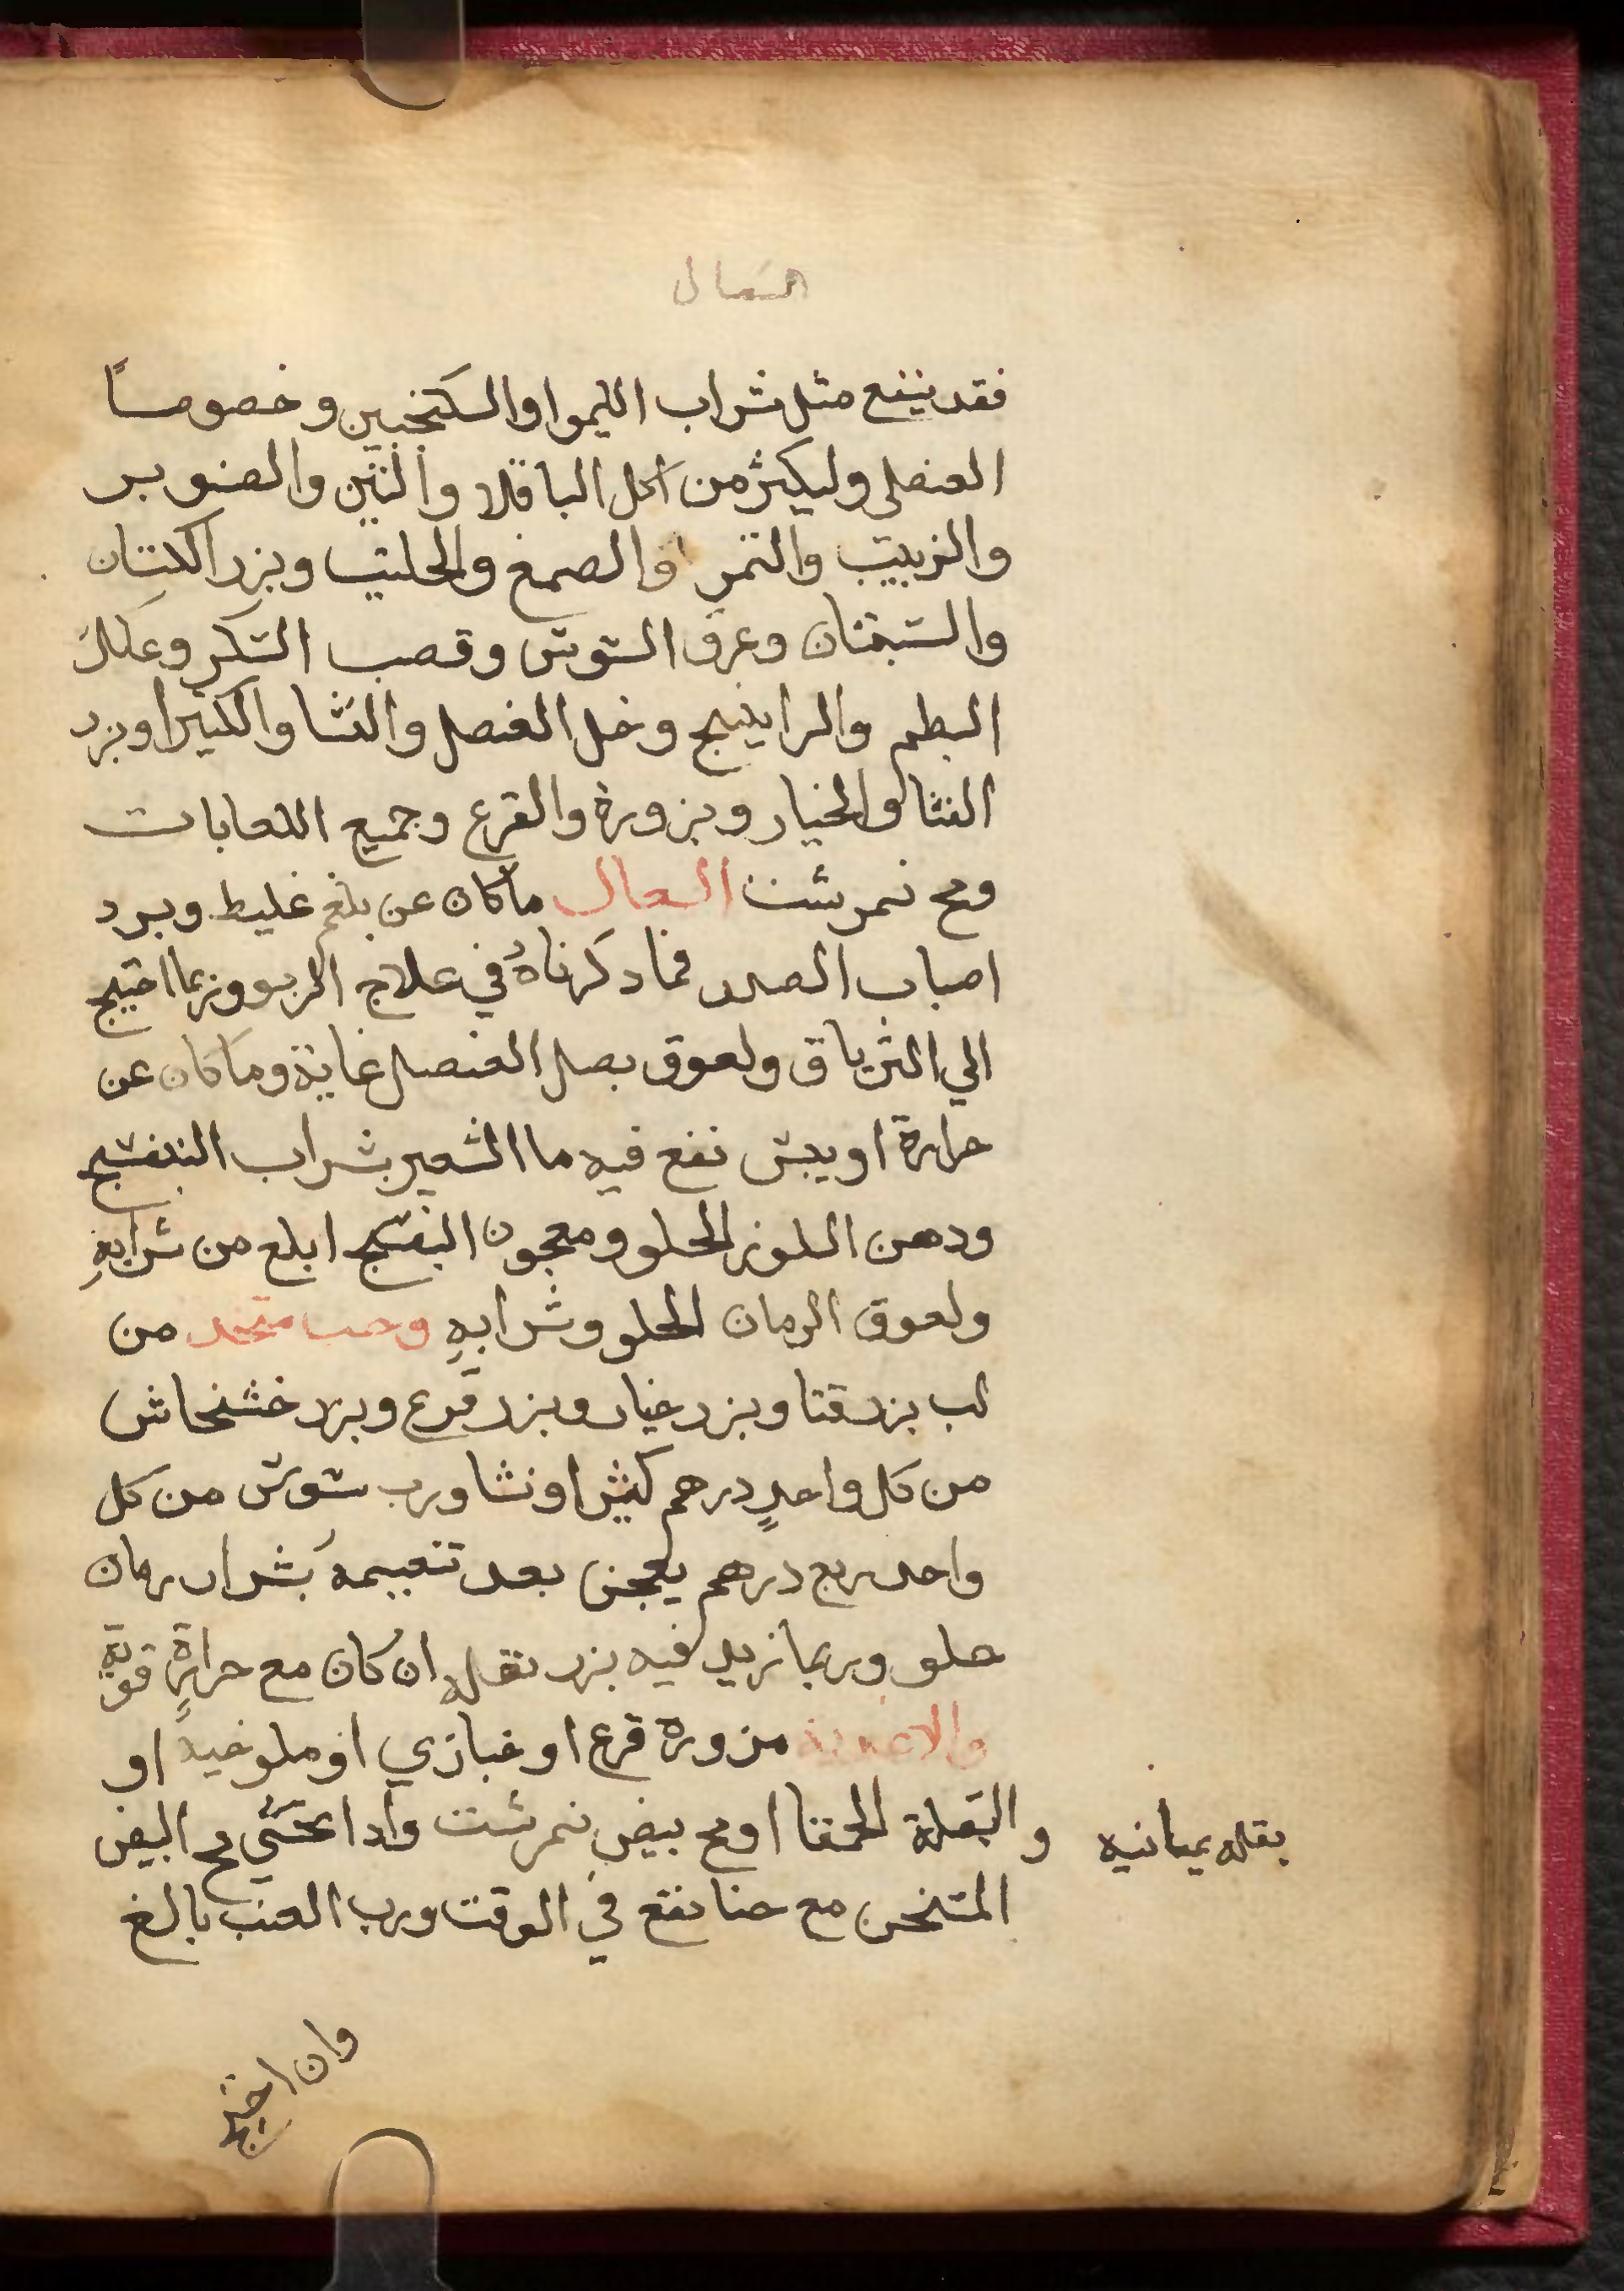 السعال
فقد ينفع مثل شراب الليموا والسكنجبين وخصوصاً
العنصلي وليكثر من اكل الباقلا والتين والصنوبر
والزبيب والتمر والصمغ والحلتيت وبزر الكتان
والسبستان وعرق السوس وقصب السكر وعلك
البطم والراينج وخل العنصل والنشا والكثيرا وبزر
القثا والخيار وبزوره والقرع وجميع اللعابات
ومح نمرشت السعال ما كان عن بلغم غليظ وبرد
اصاب الصدر فما دكرناهُ في علاج الربو وربما احتيج
الي الترياق ولعوق بصل العنصل غاية وما كان عن
حرارة او يبس نفع فيه ما الشعير بشراب البنفسج
ودهن اللوز الحلو ومعجون البنفسج ابلغ من شرابهِ
ولعوق الرمان الحلو وشرابهِ وحب متخد من
لب بزر قثا وبزر خيار وبزر قرع وبزر خشخاش
من كل واحدٍ درهم كثيرا ونشا ورب سوس من كل
واحد ربع درهم يعجن بعد تنعيمه بشراب رمان
حلو وربما زيد فيه بزر بقله ان كان مع حرارةٍ قويةٍ
والاغديه مزورة قرع او خبازي او ملوخيه او
بقله يمانيه و البقلة الحمقا او مح بيض نمرشت وادا تحسي مح البيض
المتخن مع حنا نفع في الوقت ورب العنب بالغ
وان احتيج